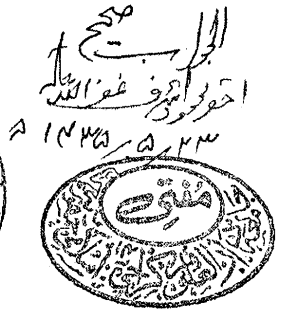 الجواب صحیح
احقر محمود اشرف غفر اللہ لہ
۲۳/۵/۱۴۳۵ھ
مفتی